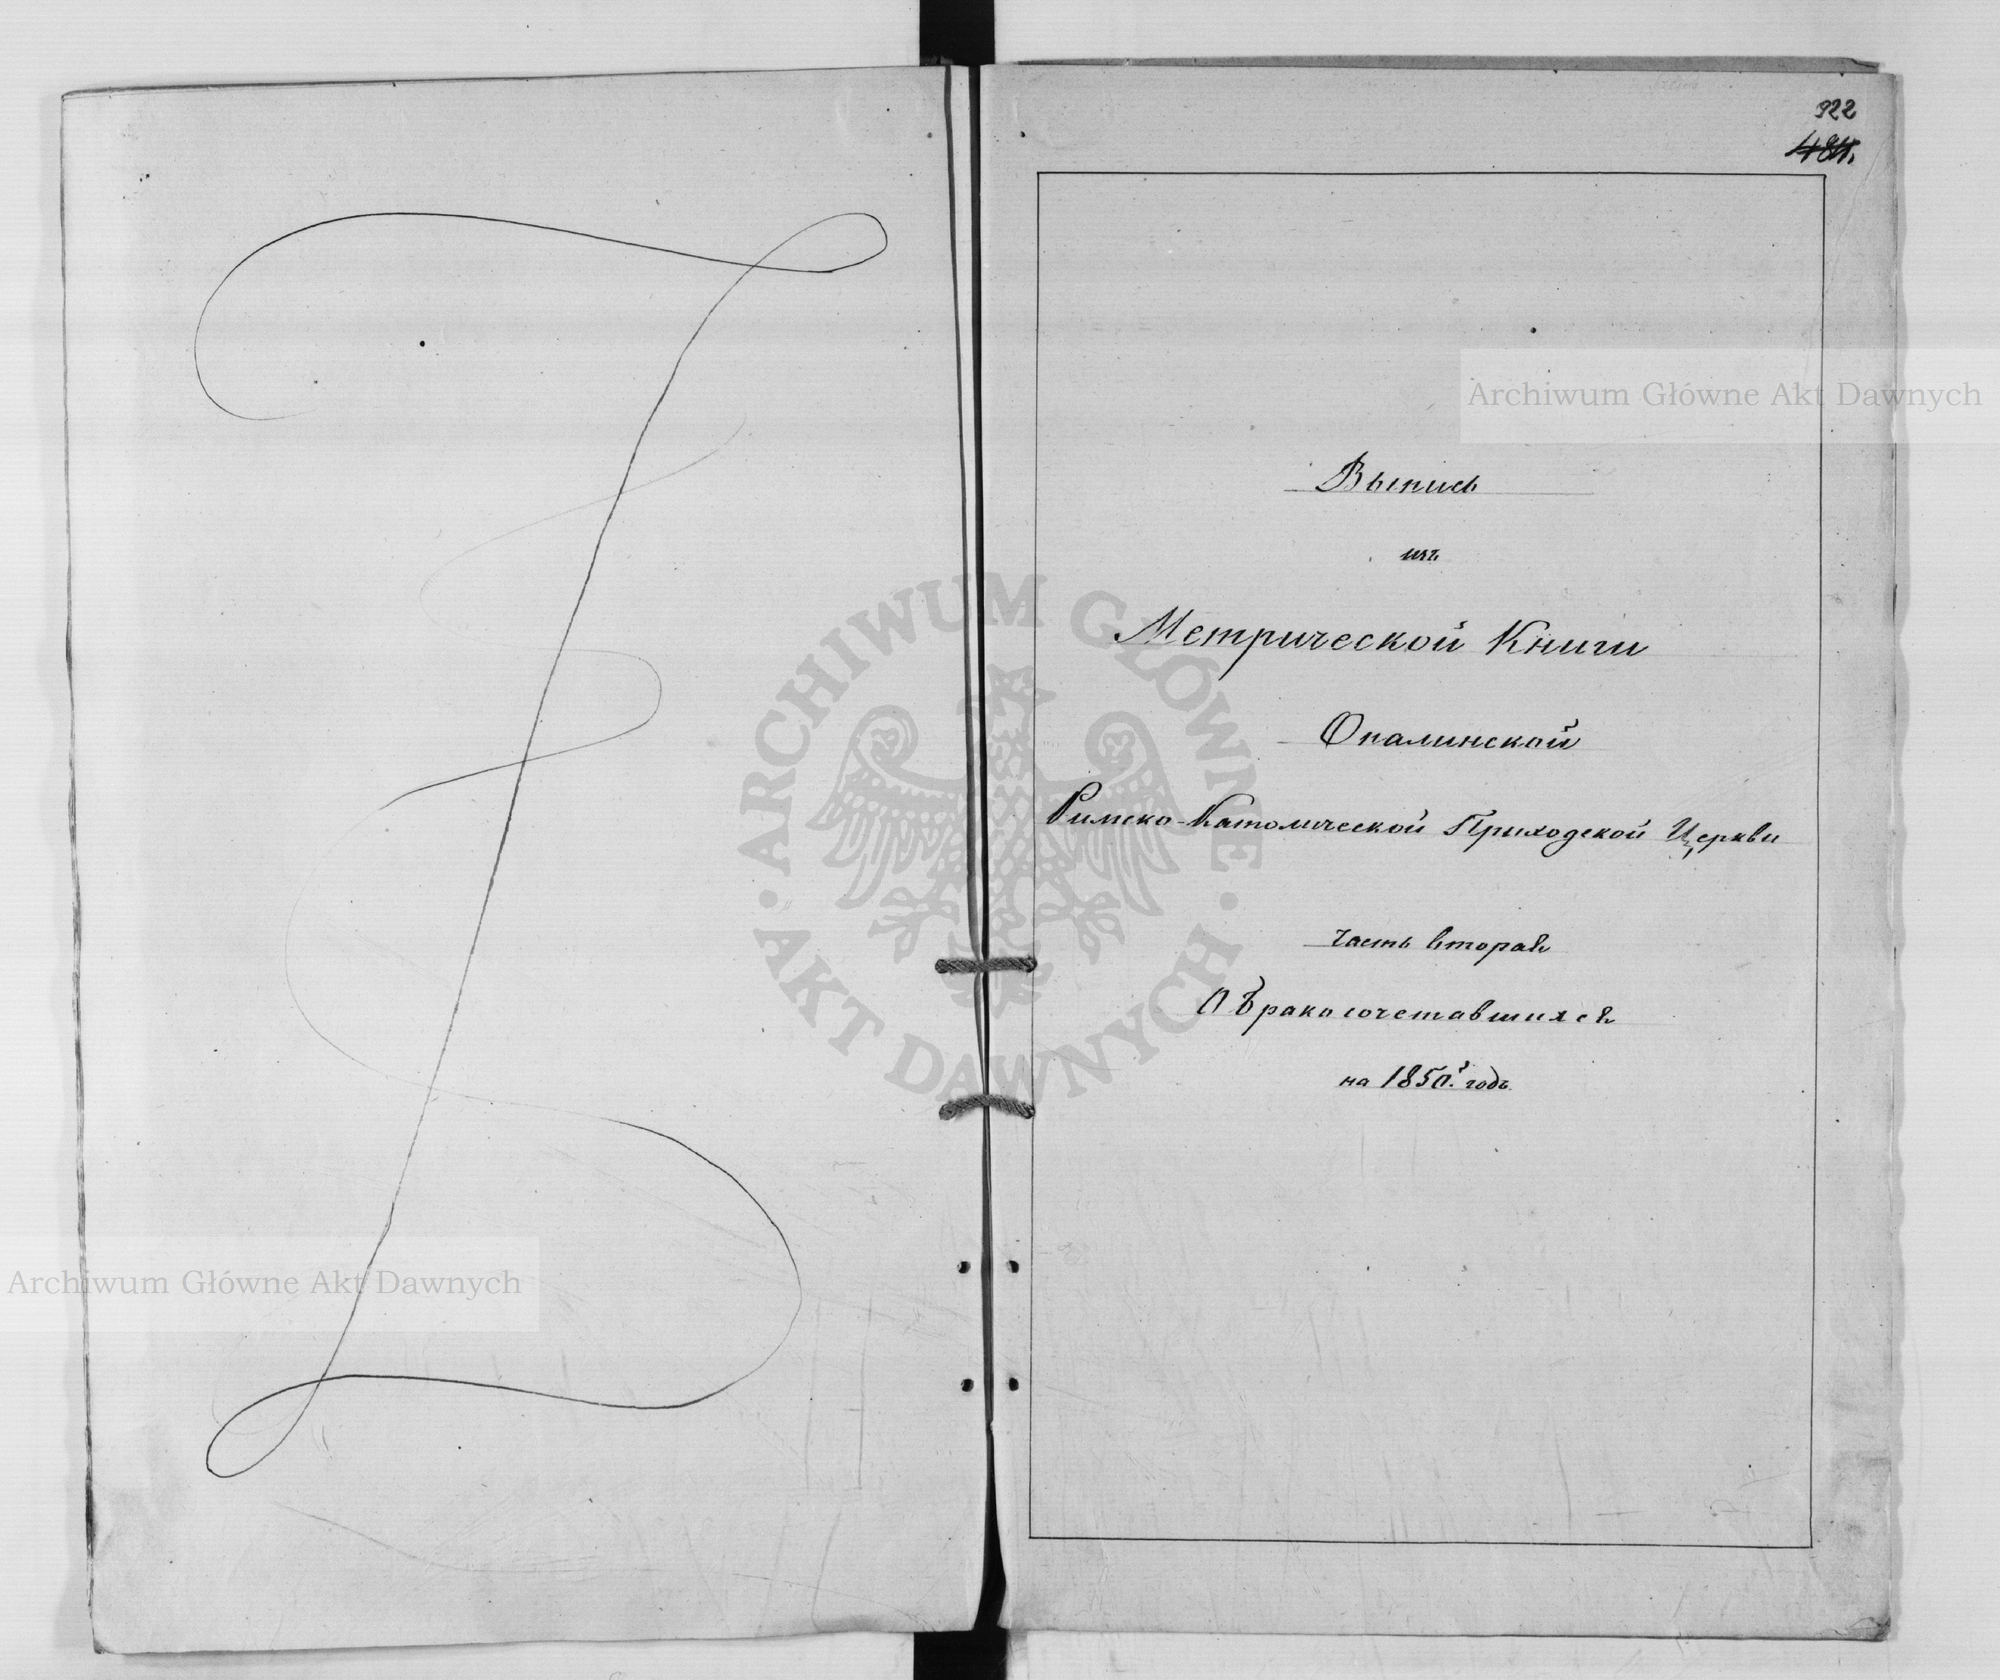 922
484.
Выпись
изъ
Метрической Книги
Опалинской
Римско-Католической Приходской Церкви
Часть вторая
О Бракосочетавшихся
на 1850й годъ
Archiwum Główne Akt Dawnych
Archiwum Główne Akt Dawnych
ARCHIWUM GŁÓWNE
AKT DAWNYCH